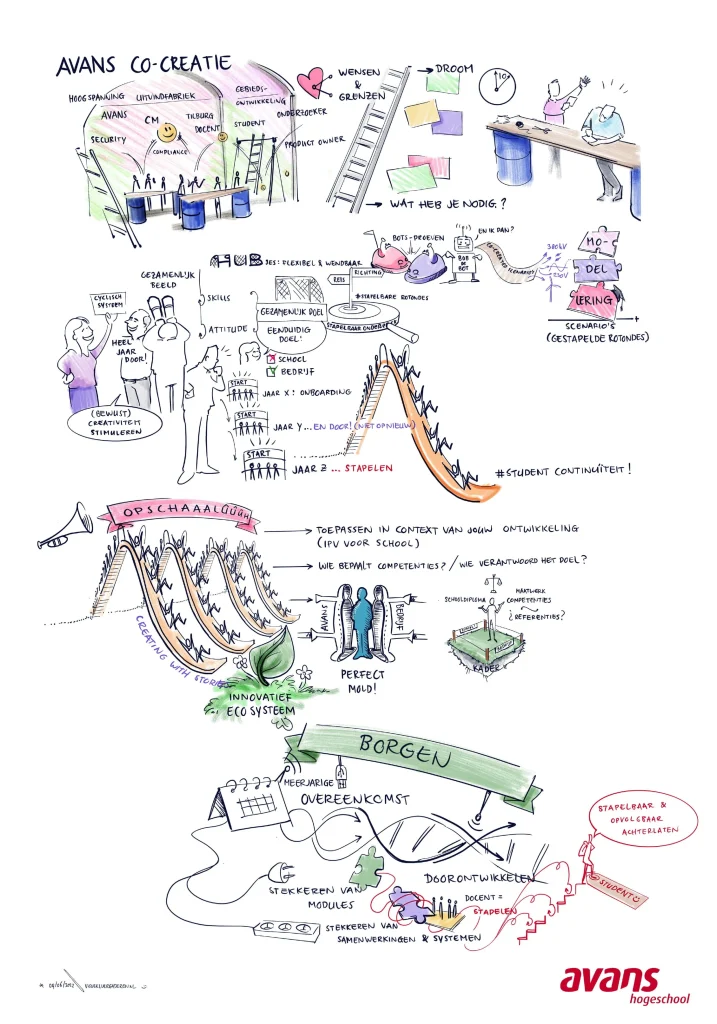 AVANS CO-CREATIE
HOOGSPANNING
UITVINDFABRIEK
GEBIEDS-
ONTWIKKELING
AVANS
CM
TILBURG
DOCENT
STUDENT
ONDERZOEKER
SECURITY
COMPLIANCE
PRODUCT OWNER
WENSEN
&
GRENZEN
→ DROOM
10
→ WAT HEB JE NODIG?
HUB
JES: FLEXIBEL & WENDBAAR
BOTS-PROEVEN
EN IK DAN?
BOB
DE
BOT
380kV
MO-
DEL
LERING
SCENARIO'S
(GESTAPELDE ROTONDES)
GEZAMENLIJK
BEELD
CYCLISCH
SYSTEEM
HEEL
JAAR
DOOR!
(BEWUST)
CREATIVITEIT
STIMULEREN
SKILLS
ATTITUDE
REIS
RICHTING
#STAPELBARE ROTONDES
GEZAMENLIJK DOEL
EENDUIDIG
DOEL!
SCHOOL
BEDRIJF
START
JAAR X: ONBOARDING
START
JAAR Y ...EN DOOR! (NIET OPNIEUW)
START
JAAR Z ... STAPELEN
#STUDENT CONTINUÏTEIT!
OPSCHAAALÛÛÛH
→ TOEPASSEN IN CONTEXT VAN JOUW ONTWIKKELING
(IPV VOOR SCHOOL)
→ WIE BEPAALT COMPETENTIES? / WIE VERANTWOORD HET DOEL?
CREATING WITH STORIES
AVANS
BEDRIJF
PERFECT
MOLD!
SCHOOLDIPLOMA
MAATWERK
COMPETENTIES
¿REFERENTIES?
KADER
INNOVATIEF
ECO SYSTEEM
BORGEN
MEERJARIGE
OVEREENKOMST
STEKKEREN VAN
MODULES
DOORONTWIKKELEN
DOCENT =
STAPELEN
STEKKEREN VAN
SAMENWERKINGEN & SYSTEMEN
STAPELBAAR &
OPVOLGBAAR
ACHTERLATEN
STUDENT
avans
hogeschool